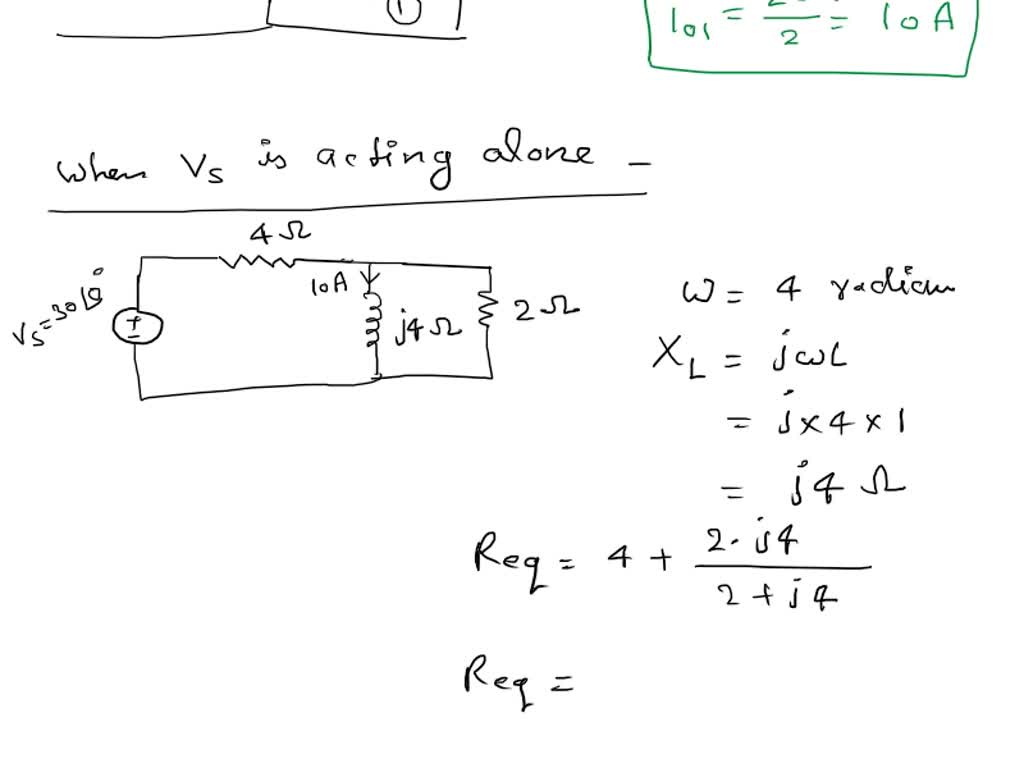 1
I01 = 2 / 2 = 10 A
When Vs is acting alone -
4 Ω
Vs = 30∠0°
10A
j4 Ω
2 Ω
ω = 4 radian
XL = jωL
= j × 4 × 1
= j4 Ω
Req = 4 + 2·j4 / 2 + j4
Req =